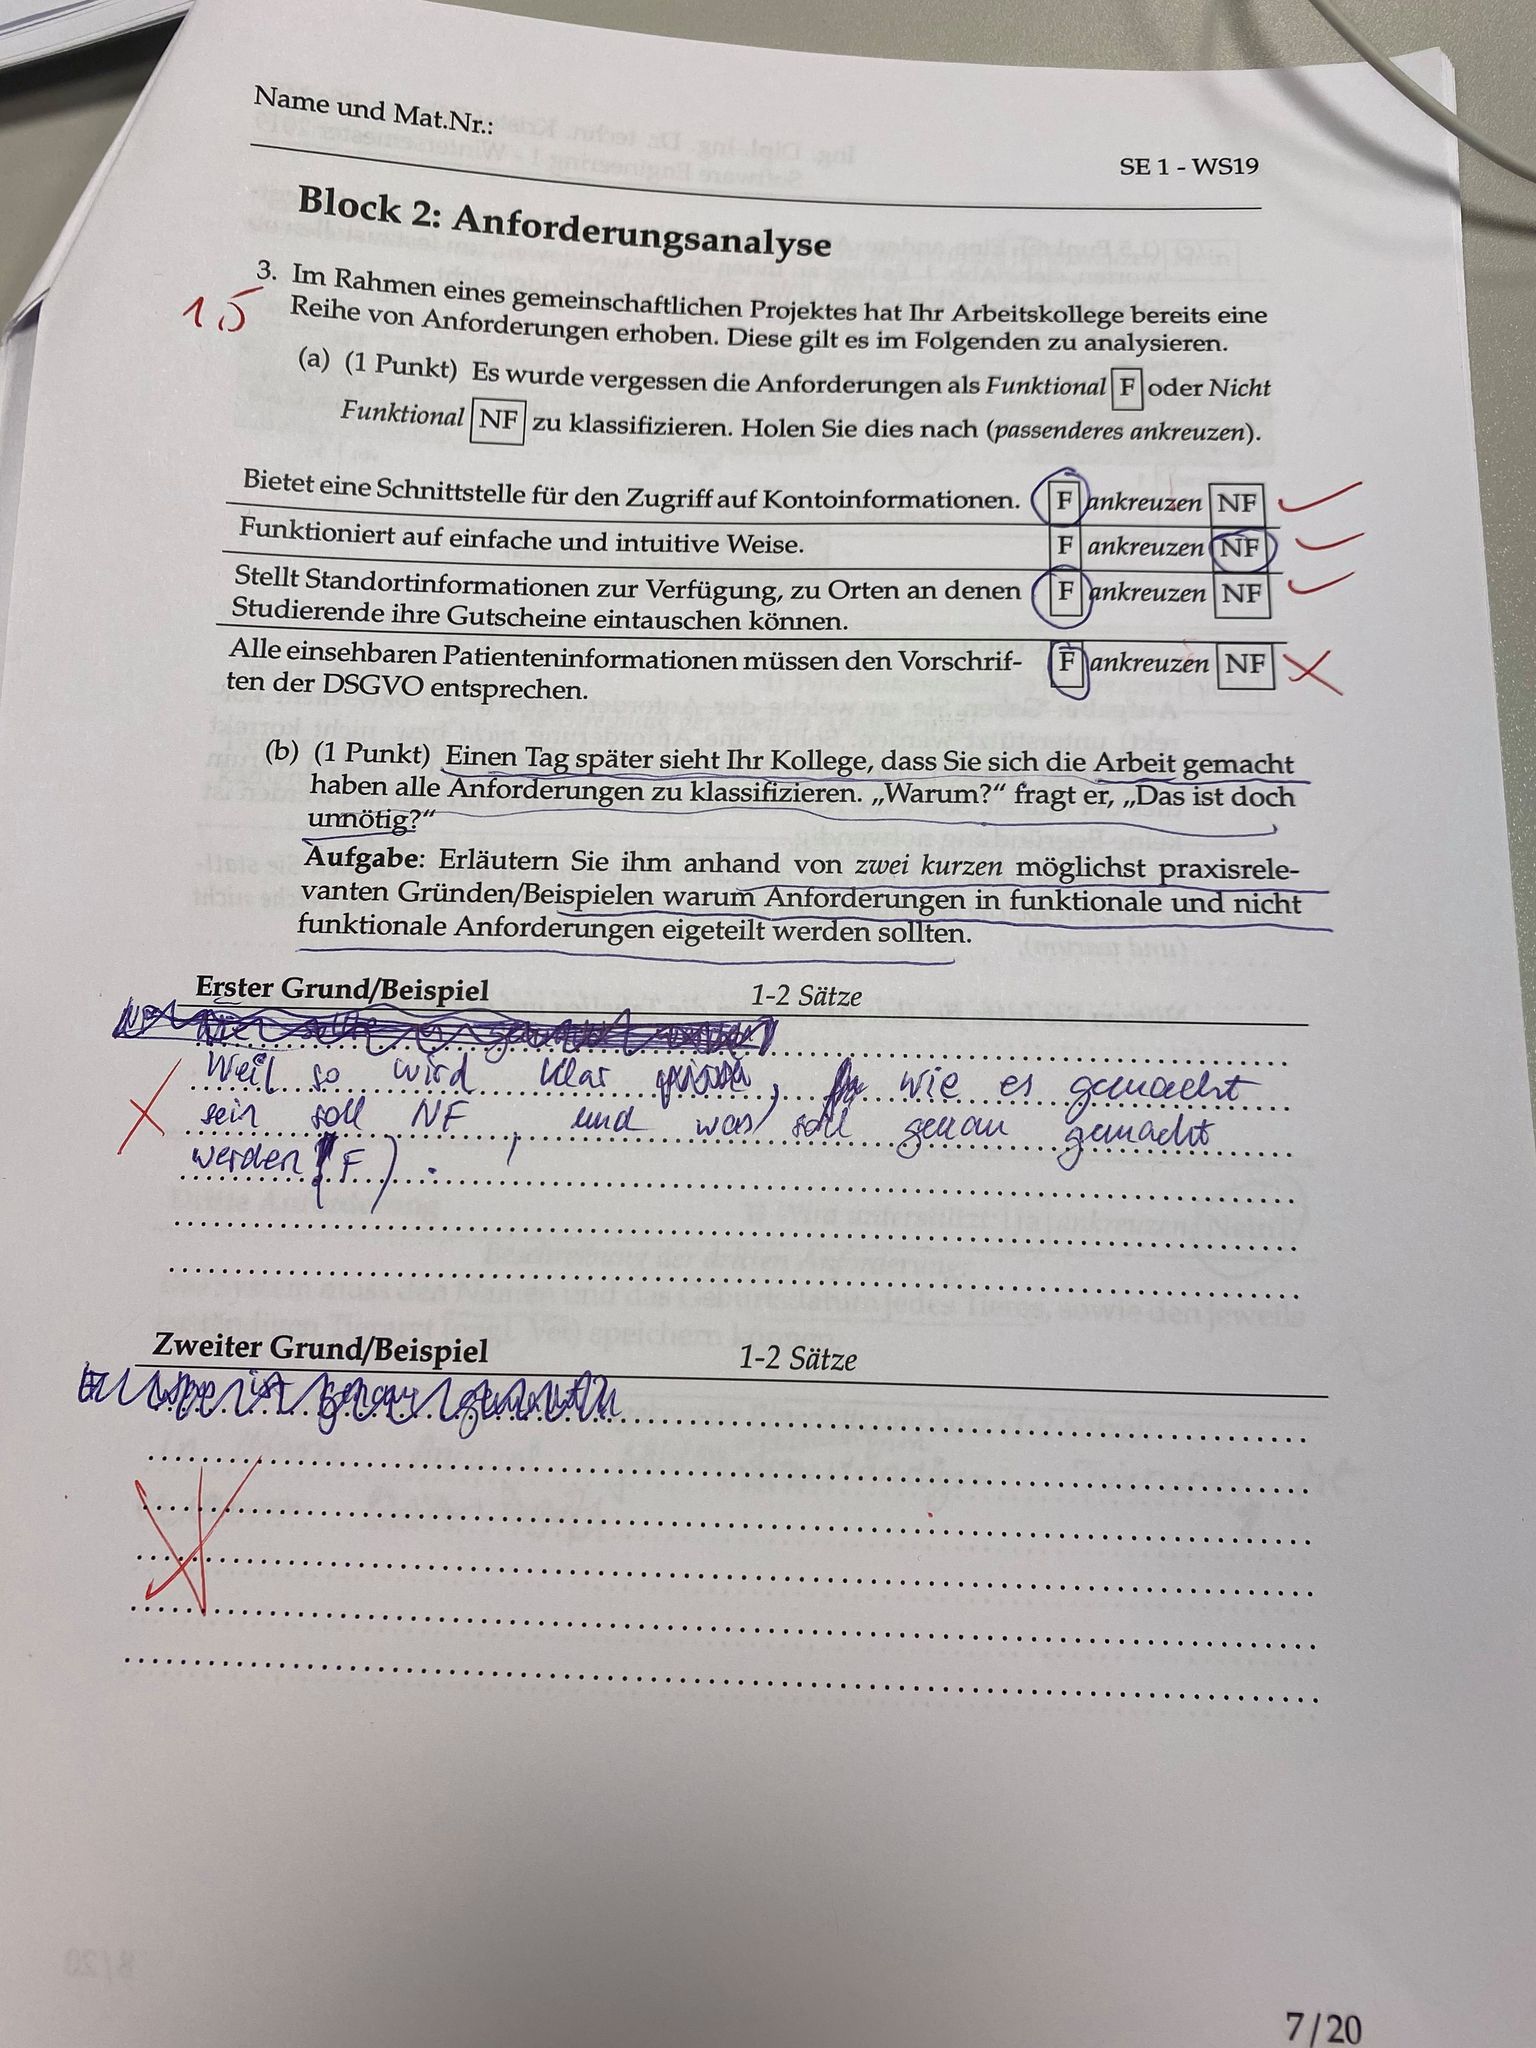 Name und Mat.Nr.:
SE 1 - WS19
Block 2: Anforderungsanalyse
3. Im Rahmen eines gemeinschaftlichen Projektes hat Ihr Arbeitskollege bereits eine
15
Reihe von Anforderungen erhoben. Diese gilt es im Folgenden zu analysieren.
(a) (1 Punkt) Es wurde vergessen die Anforderungen als Funktional F oder Nicht
Funktional NF zu klassifizieren. Holen Sie dies nach (passenderes ankreuzen).
Bietet eine Schnittstelle für den Zugriff auf Kontoinformationen. F ankreuzen NF
Funktioniert auf einfache und intuitive Weise. F ankreuzen NF
Stellt Standortinformationen zur Verfügung, zu Orten an denen F ankreuzen NF
Studierende ihre Gutscheine eintauschen können.
Alle einsehbaren Patienteninformationen müssen den Vorschrif- F ankreuzen NF
ten der DSGVO entsprechen.
(b) (1 Punkt) Einen Tag später sieht Ihr Kollege, dass Sie sich die Arbeit gemacht
haben alle Anforderungen zu klassifizieren. „Warum?“ fragt er, „Das ist doch
unnötig?“
Aufgabe: Erläutern Sie ihm anhand von zwei kurzen möglichst praxisrele-
vanten Gründen/Beispielen warum Anforderungen in funktionale und nicht
funktionale Anforderungen eigeteilt werden sollten.
Erster Grund/Beispiel 1-2 Sätze
Weil so wird klar , wie es gemacht
sein soll NF , und was soll genau gemacht
werden (F).
Zweiter Grund/Beispiel 1-2 Sätze
7/20